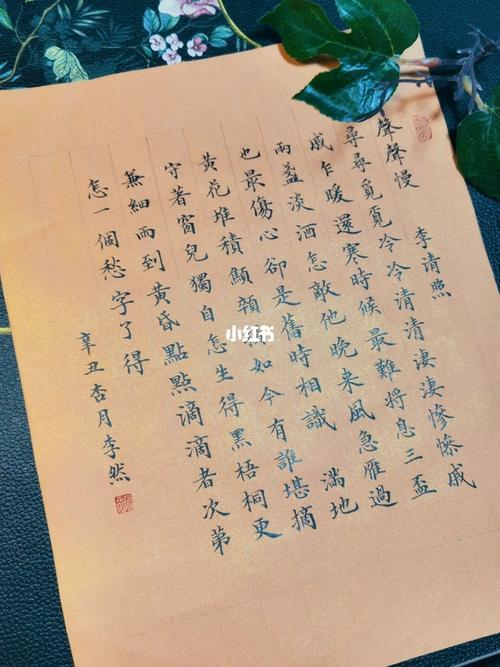 聲聲慢 李清照
尋尋覓覓冷冷清清淒淒慘慘戚
戚乍暖還寒時候最難將息三盃
兩盞淡酒怎敵他晚来風急雁過
也最傷心卻是舊時相識 滿地
黃花堆積顦顇如今有誰堪摘
守著窗兒獨自怎生得黑梧桐更
兼細雨到黃昏點點滴滴者次第
怎一個愁字了得
辛丑杏月李然
小红书